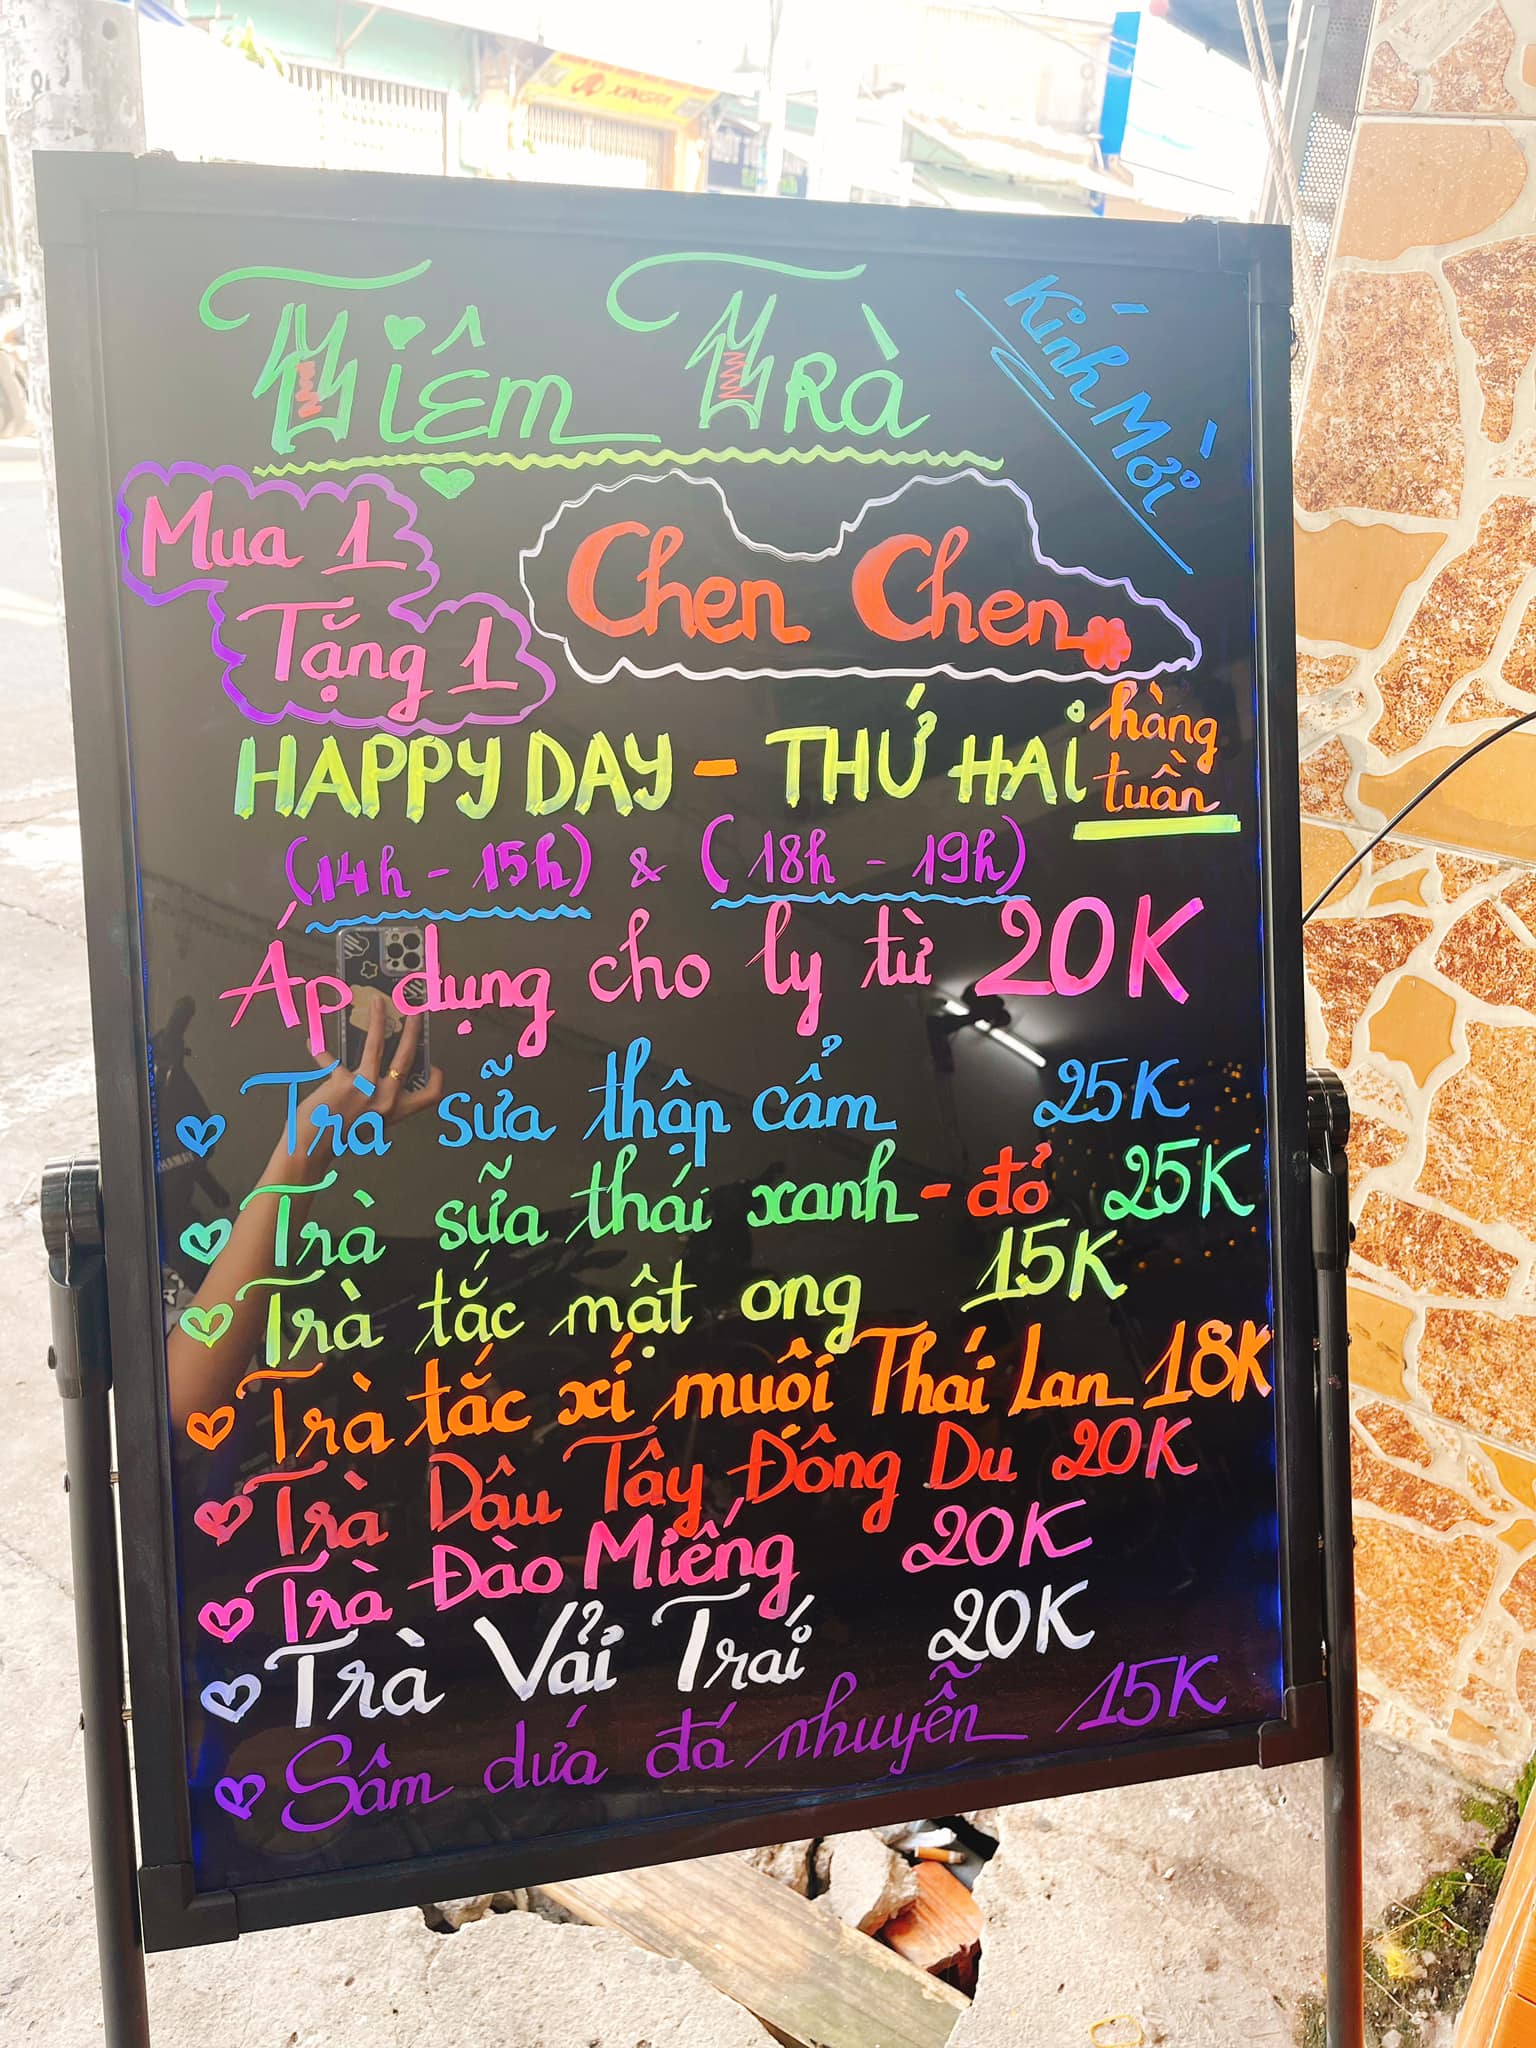 XINGFA
Tiệm Trà
Kính Mời
Mua 1
Tặng 1
Chen Chen
HAPPY DAY - THỨ HAI hàng tuần
(14h - 15h) & (18h - 19h)
Áp dụng cho ly từ 20K
Trà sữa thập cẩm 25K
Trà sữa thái xanh - đỏ 25K
Trà tắc mật ong 15K
Trà tắc xí muội Thái Lan 18K
Trà Dâu Tây Động Du 20K
Trà Đào Miếng 20K
Trà Vải Trái 20K
Sâm dứa đá nhuyễn 15K